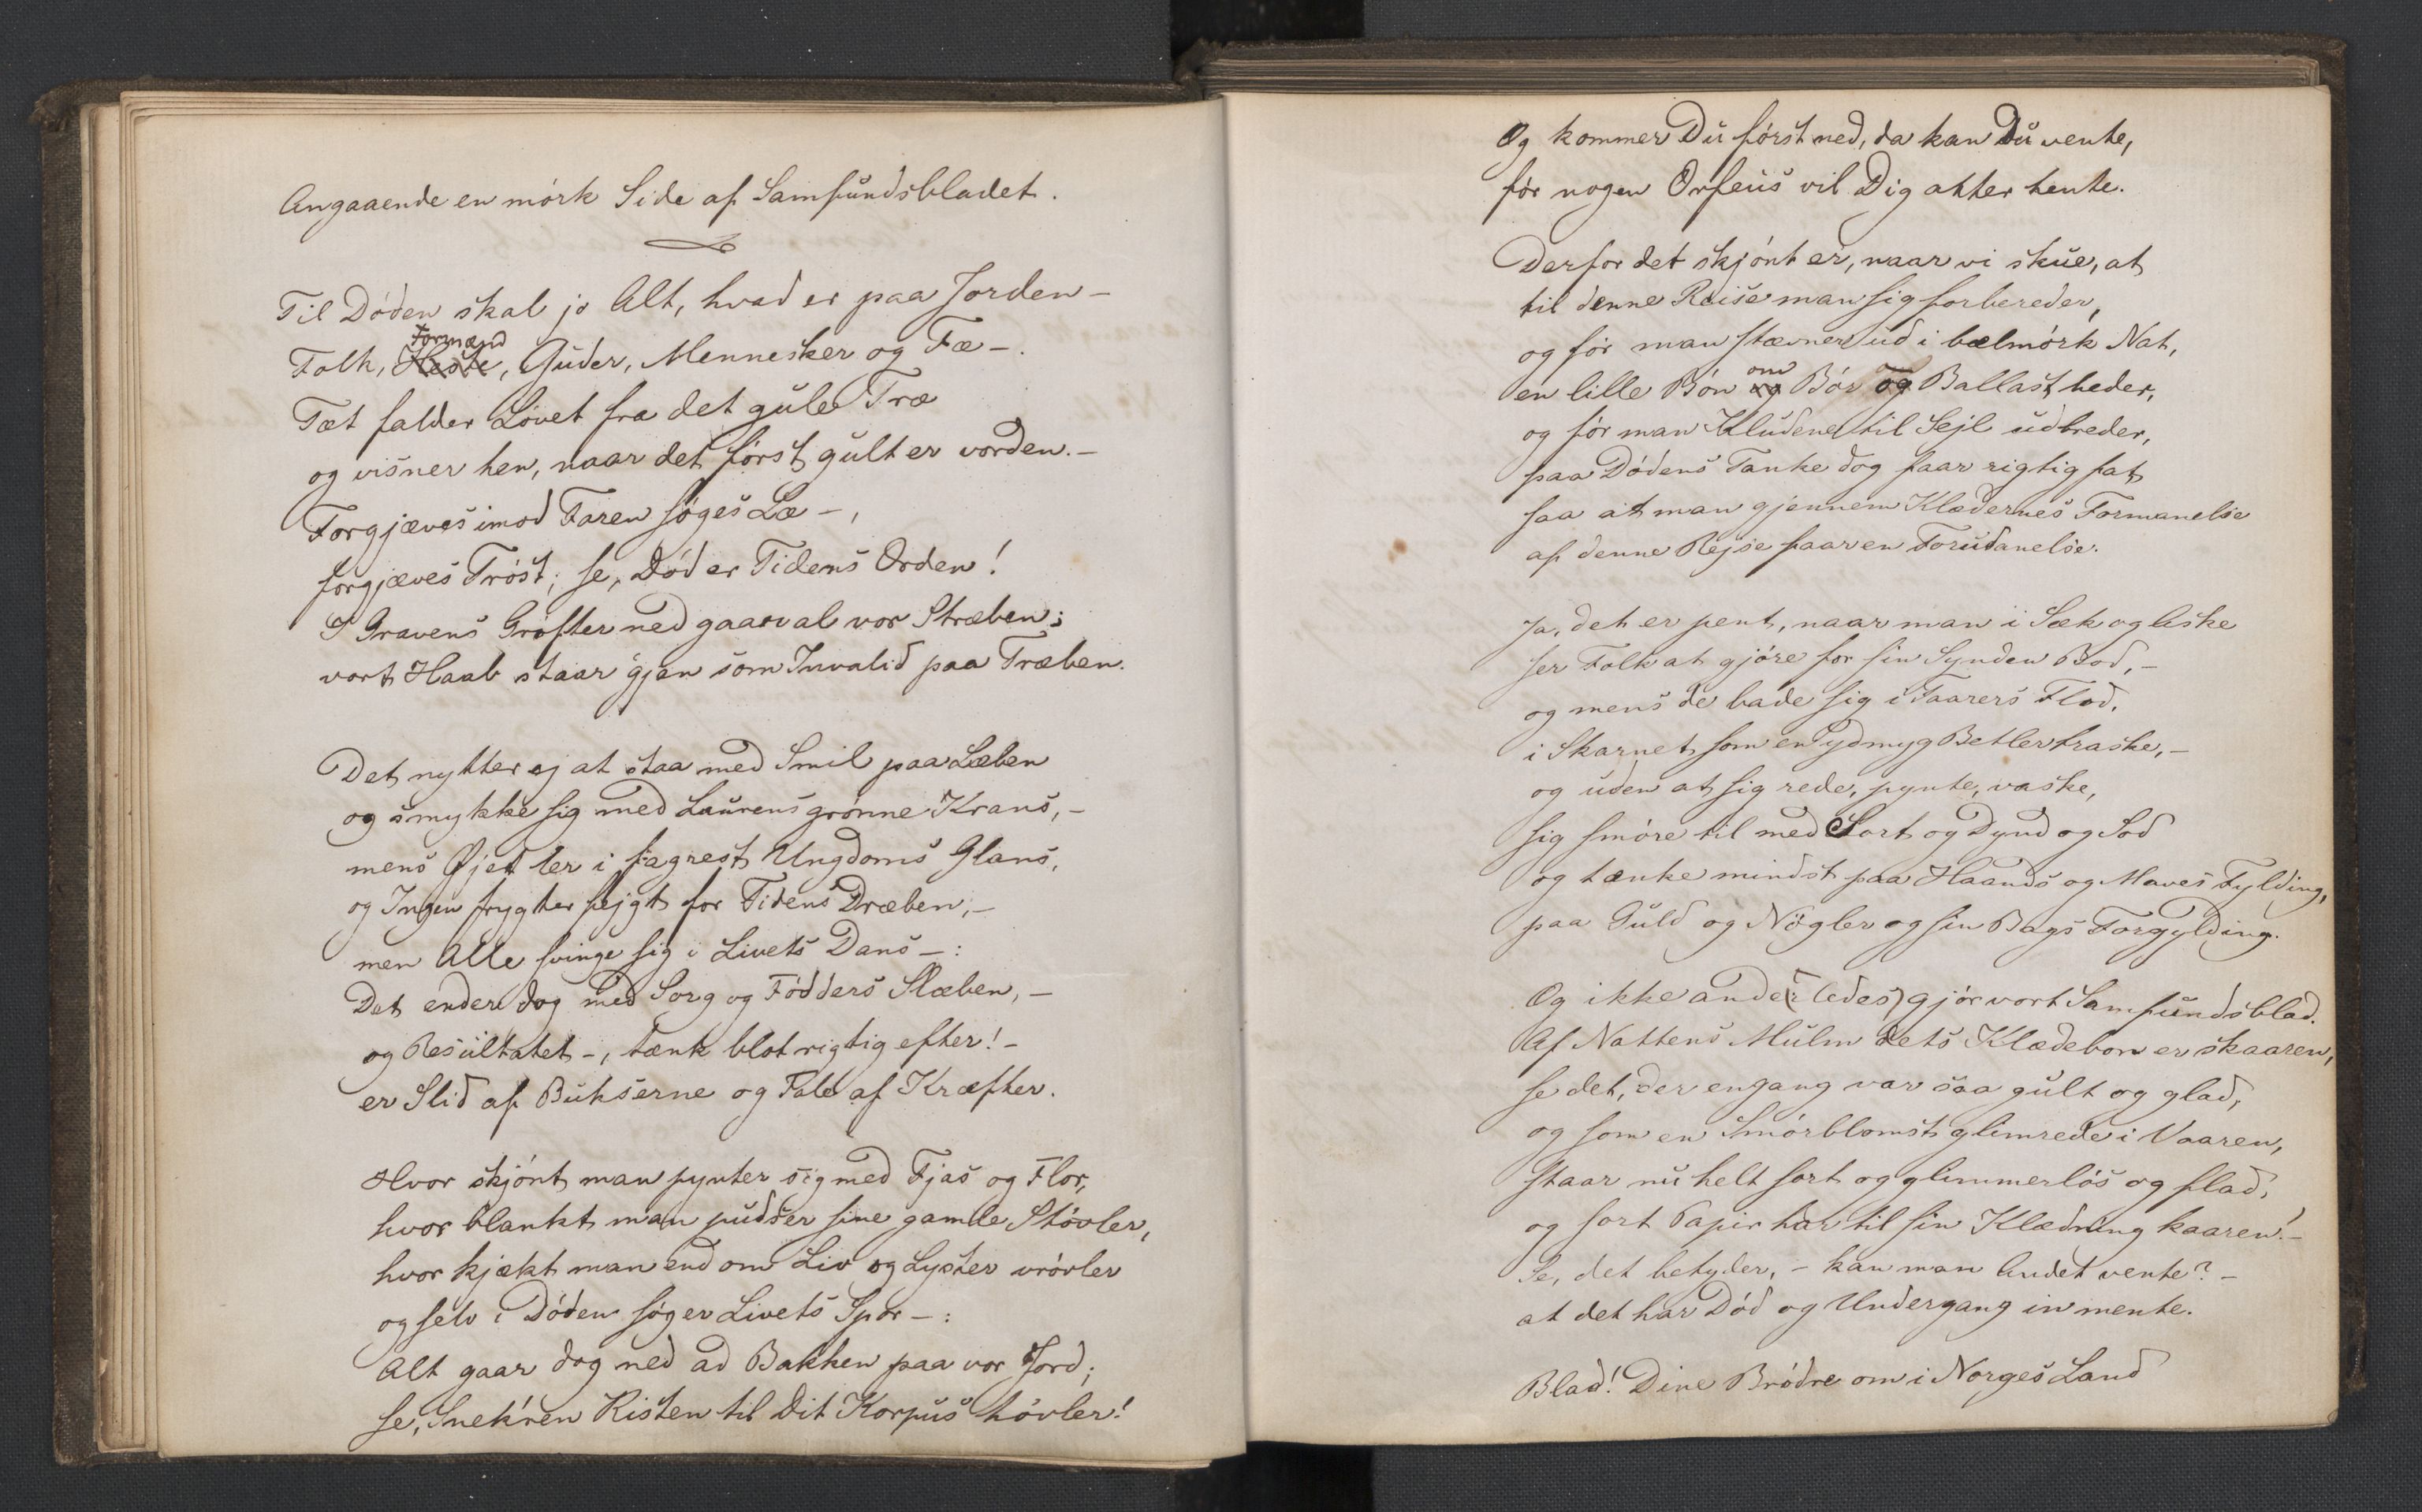 Angaaende en mórk Side af Samfundsbladet.
Til Dóden skal jo Alt, hvad er paa Jorden –
Formænd
Folk, Heste, Guder, Mennesker og Fæ –.
Tæt falder Lóvet fra det gule Træ
og visner hen, naar det fórst gult er vorden. –
Forgjæves imod Faren søges Læ –,
forgjæves Tróst; se, Dód er Tidens Orden!
I Gravens Grófter ned gaar al vor Stræben;
vort Haab staar 'gjen som Invalid paa Træben.
Det nytter ej at staa med Smil paa Læben
og smykke sig med Laurens grónne Krans, –
mens Øjet ler i fagrest Ungdoms Glans,
og Ingen frygter fejgt for Tidens Dræben, –
men Alle svinge sig i Livets Dans –:
Det ender dog med Sorg og Fódders Slæben, –
og Resultatet –, tænk blot rigtig efter! –
er Slid af Bukserne og Tab af Kræfter.
Hvor skjónt man pynter sig med Fjas og Flor,
hvor blankt man pudser sine gamle Stóvler,
hvor kjækt man end om Liv og Lyster vróvler
og selv i Dóden søger Livets Spor –:
Alt gaar dog ned ad Bakken paa vor Jord;
se, Snek'ren Kisten til Dit Korpus hóvler!
Og kommer Du fórst ned, da kan Du vente,
fór nogen Orfeus vil Dig atter hente.
Derfor det skjónt er, naar vi skue, at
til denne Reise man sig forbereder,
og fór man stævner ud i bælmórk Nat,
om
en lille Bón og Bór og Ballast beder,
og fór man Kludene til Sejl udbreder,
paa Dódens Tanke dog faar rigtig fat
saa at man gjennem Klædernes Formanelse
af denne Rejse faar en Forudanelse.
Ja, det er pent, naar man i Sæk og Aske
ser Folk at gjóre for sin Synden Bod, –
og mens de bade sig i Taarers Flod,
i Skarnet som en ydmyg Betler traske, –
og uden at sig rede, pynte, vaske,
sig smóre til med Sort og Dynd og Sod
og tænke mindst paa Haands og Maves Fylding,
paa Guld og Nøgler og sin Bags Forgylding.
Og ikke ande(rledes) gjór vort Samfundsblad.
Af Nattens Mulm dets Klædebon er skaaren,
se det, der engang var saa gult og glad,
og som en Smórblomst glimrede i Vaaren,
staar nu helt sort og glimmerlós og flad,
og sort Papir har til sin Klædning kaaren! –
Se, det betyder, – kan man Andet vente? –
at det har Dód og Undergang in mente.
Blad! Dine Bródre om i Norges Land